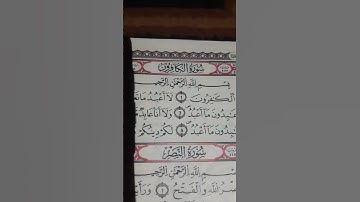 سُورَةُ الْكَافِرُونَ
بِسْمِ اللَّهِ الرَّحْمَٰنِ الرَّحِيمِ
الْكَٰفِرُونَ ١ لَا أَعْبُدُ مَا تَعْ
بِدُونَ مَا أَعْبُدُ ٣ وَلَا أَنَا عَابِدٌ مَّا
بِدُونَ مَا أَعْبُدُ ٥ لَكُمْ دِينُكُمْ
سُورَةُ النَّصْرِ
بِسْمِ اللَّهِ الرَّحْمَٰنِ الرَّحِيمِ
نَصْرُ اللَّهِ وَالْفَتْحُ ١ وَرَأَيْتَ